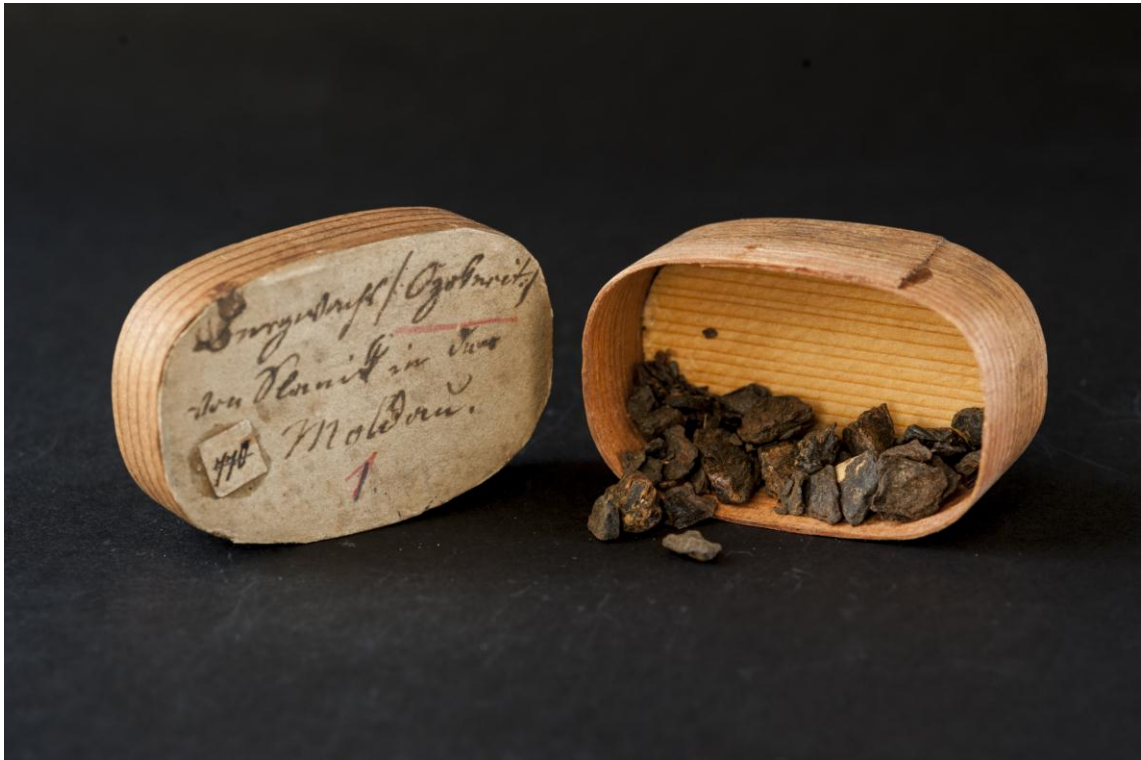 Bergwachs /: Ozokerit :/
von Slanik in der
Moldau.
770
1